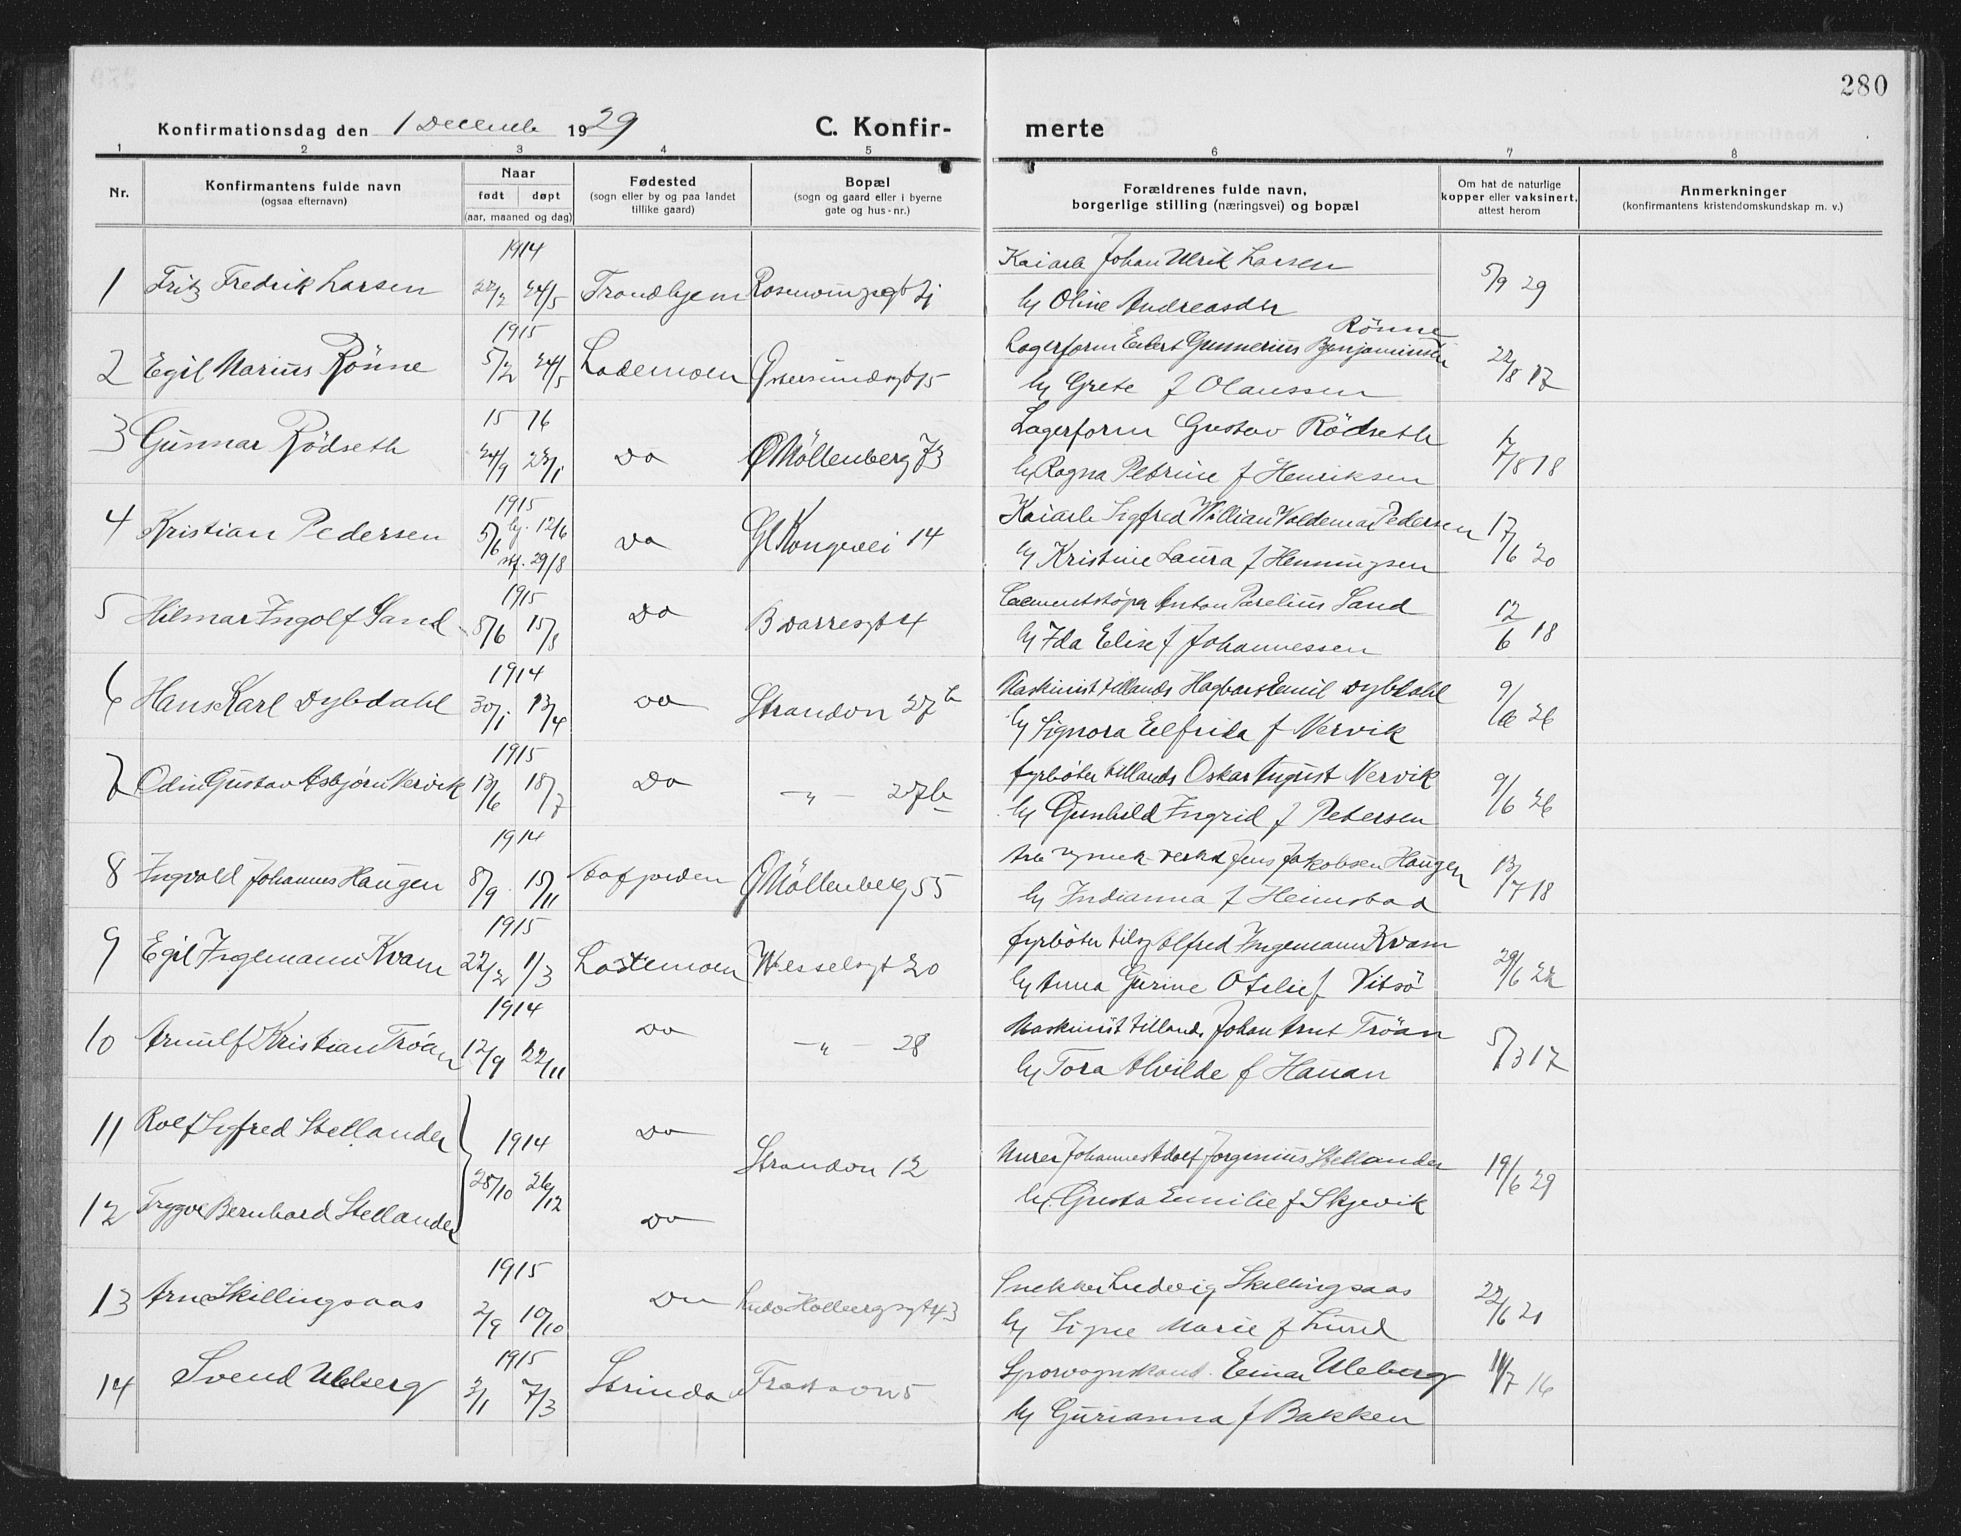 280
Konfirmationsdag den 1 Decemb 1929 C. Konfir- merte
1 2 3 4 5 6 7 8
Nr. Konfirmantens fulde navn (ogsaa efternavn) Naar født døpt (aar, maaned og dag) Fødested (sogn eller by og paa landet tillike gaard) Bopæl (sogn og gaard eller i byerne gate og hus-nr.) Forældrenes fulde navn, borgerlige stilling (næringsvei) og bopæl Om hat de naturlige kopper eller vaksinert, attest herom Anmerkninger (konfirmantens kristendomskundskap m. v.)
1914 Kaiarb Johan Ulrik Larsen
1 Fritz Fredrik Larsen 22/2 24/5 Trondhjem 5/9 29
Hu Oline Andreasdtr
1915 Rönne
Lagerform Edert Gunnerius Benjaminsen
2 Egil Marius Rönne 5/2 24/5 Lademoen Østersundsgt 15 22/8 17
Hu Grete f Olaussen
15 16 Lagerform Gustav Rödseth
3 Gunnar Rödseth 24/9 23/1 Do Ø Möllenberg 73 7/8 18
Hu Ragna Petrine f Henriksen
1915 Kaiarb Sigfred William Valdemar Pedersen
4 Kristian Pedersen 5/6 hj. 12/6 stf. 29/8 Do Gl Kongevei 14 17/6 20
Hu Kristine Laura f Henningsen
1915 Cementstöper Anton Parelius Sand
5 Hilmar Ingolf Sand 5/6 15/8 Do Bvarresgt 4 12/6 18
Hu Ida Elise f Johannessen
1914 Maskinist tillands Hagbart Emil Dybdahl
6 Hans Karl Dybdahl 30/1 13/4 Do Strandvn 27b 9/6 26
Hu Signora Elfrida f Nervik
1915 fyrböter tillands Oskar August Nervik
7 Odin Gustav Asbjørn Nervik 13/6 18/7 Do -"- 27b 9/6 26
Hu Gunhild Ingrid f Petersen
1914 Jens Jakobsen Haugen
8 Ingvald Johannes Haugen 8/9 15/11 Aafjorden Ø Möllenberg 55 13/7 18
Hu Indianna f Heimstad
1915 fyrböter tils Alfred Ingemann Kvam
9 Egil Ingemann Kvam 22/2 1/3 Lademoen Wesselsgt 20 29/6 22
Hu Anna Gurine Otelie f Vitsö
1914 Maskinist tillands Johan Arnt Tröan
10 Arnulf Kristian Tröan 12/9 22/11 Do -"- 28 5/3 17
Hu Tora Alvilde f Hauan
11 Rolf Sigfred Stellander Do
1914 Strandvn 12 Murer Johannes Adolf Jørginius Stellander 19/6 29
28/10 26/12
12 Trygve Bernhard Stellander Do Hu Gusta Emilie f Skjevik
1915 Snekker Ludvig Skillingsaas
13 Arne Skillingsaas 2/9 10/10 Do Ludv Holbergsgt 43 22/6 21
Hu Signe Marie f Lund
1915 Sporvognskond. Einar Uleberg
14 Svend Uleberg 3/1 7/3 Strinda 11/7 16
Hu Gurianna f Bakken